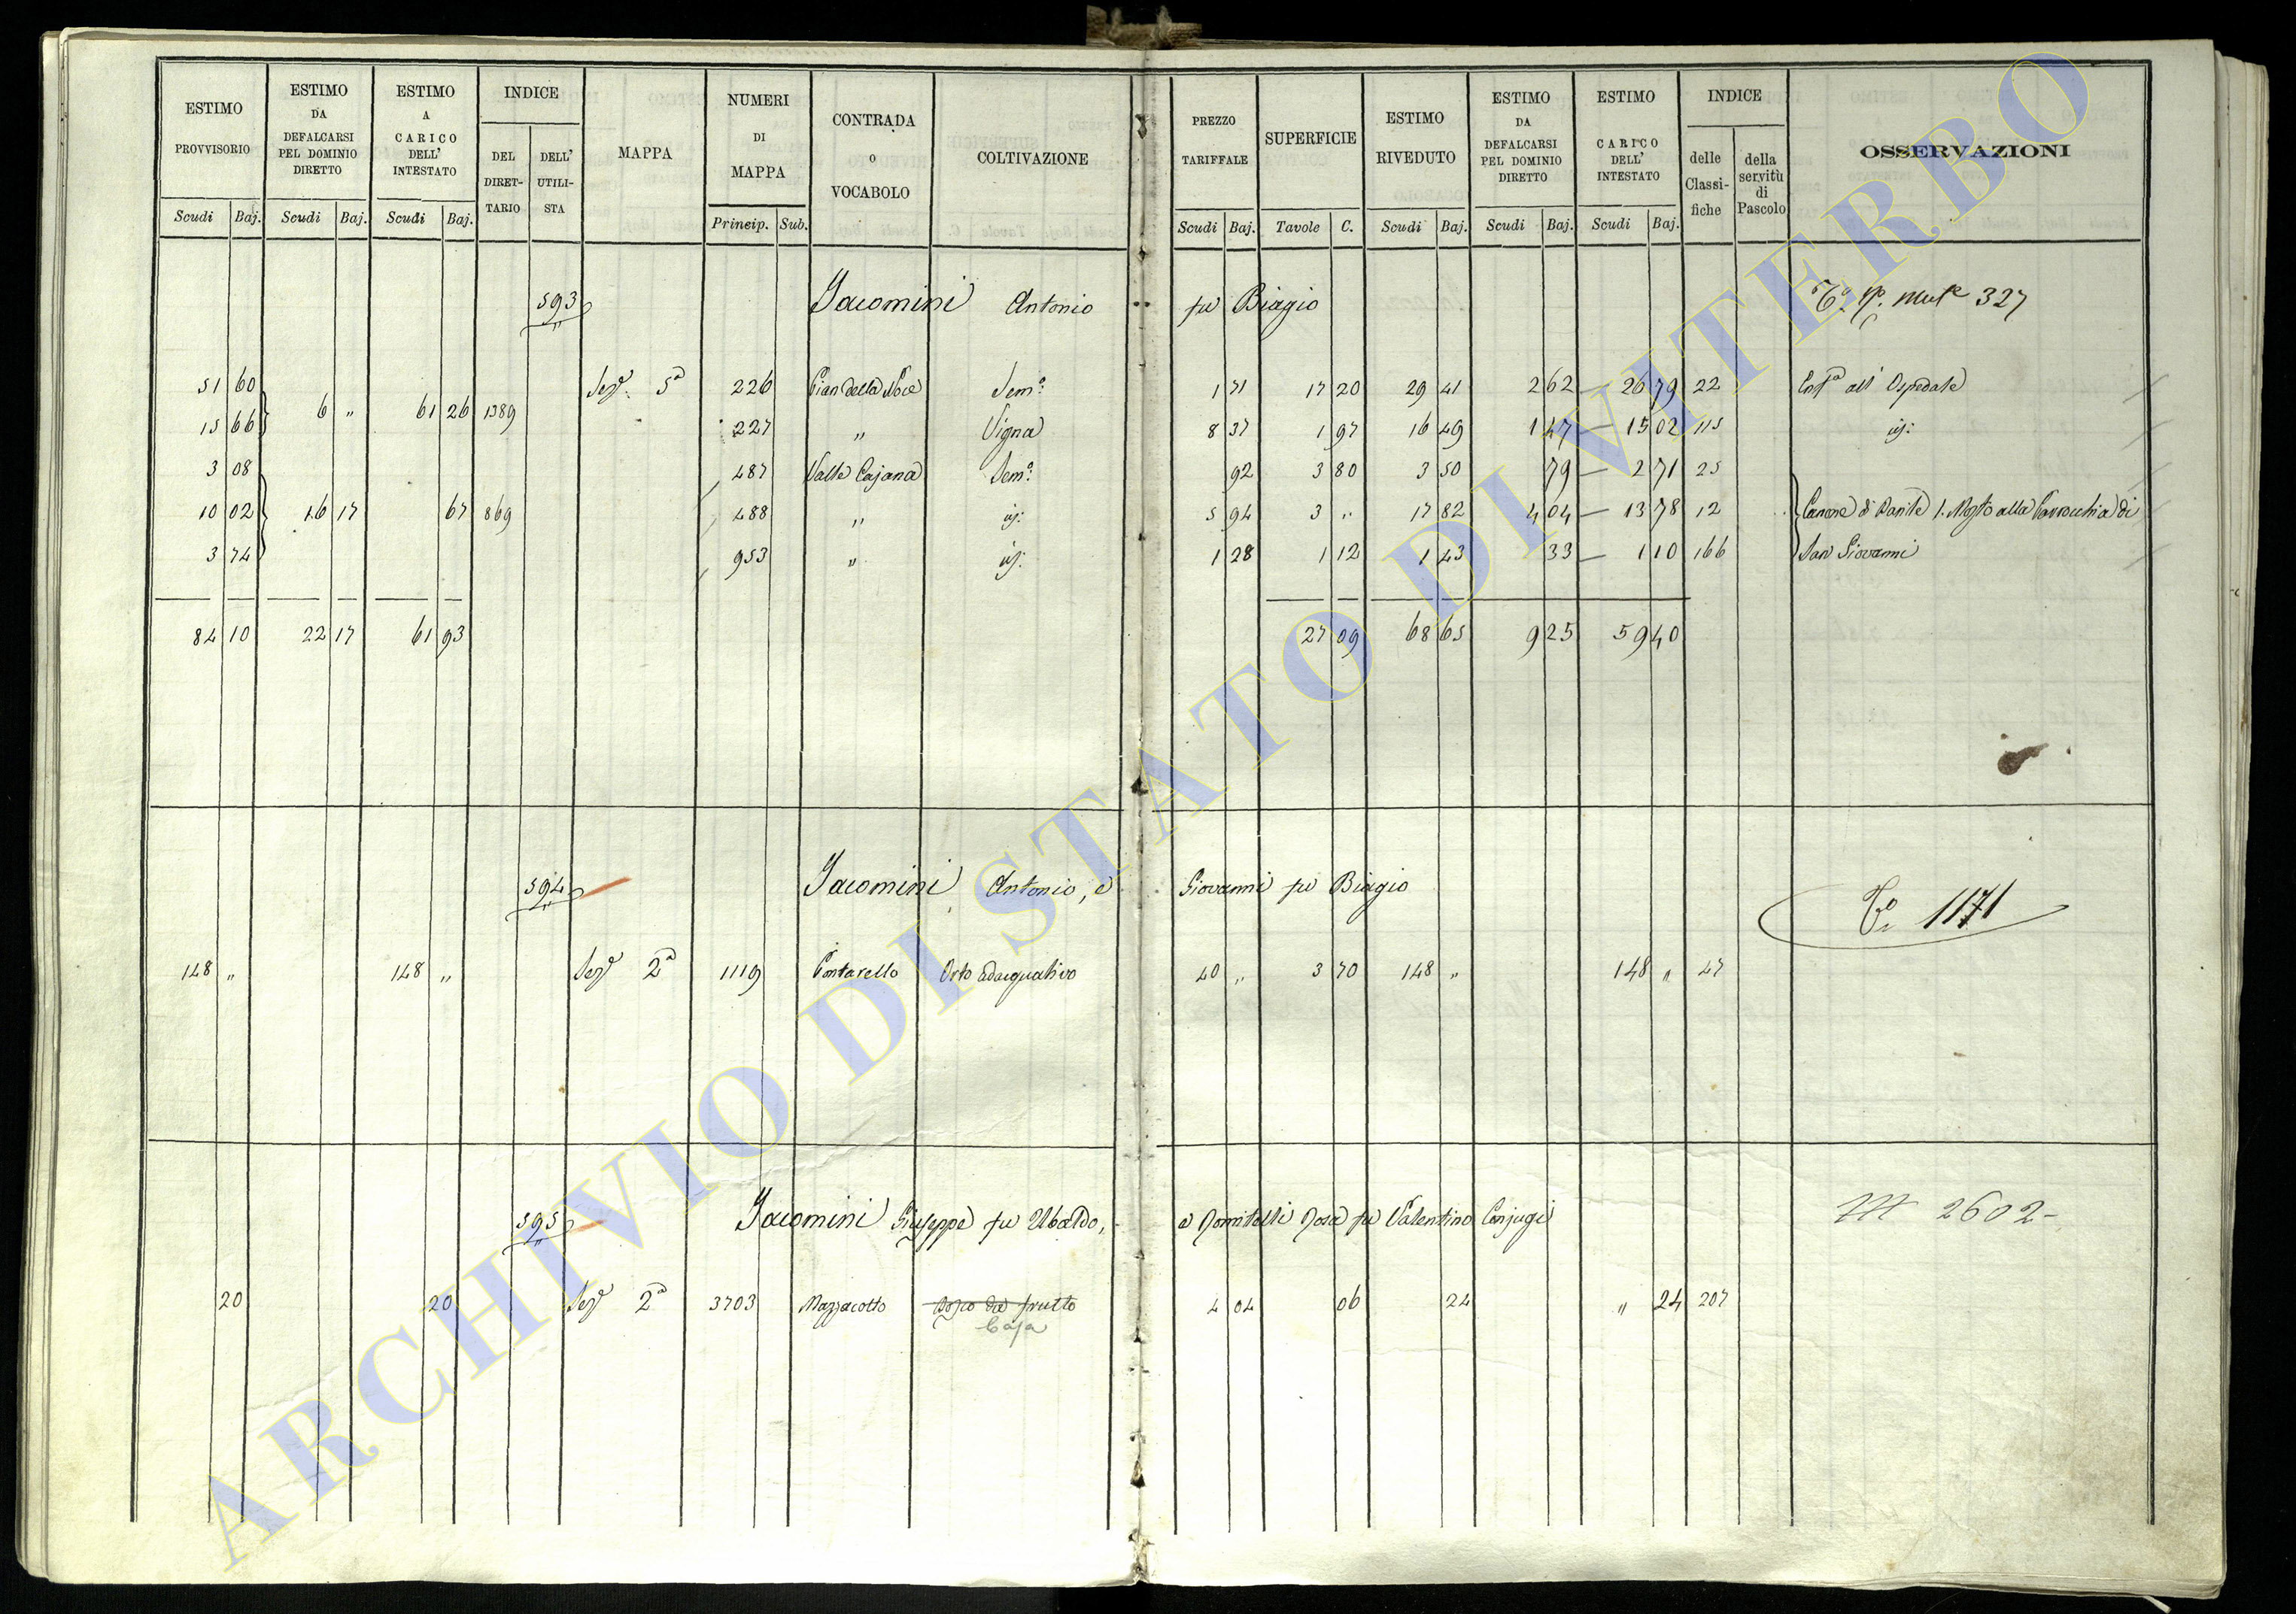 ESTIMO PROVVISORIO
ESTIMO DA DEFALCARSI PEL DOMINIO DIRETTO
ESTIMO A CARICO DELL' INTESTATO
INDICE
DEL DIRETTARIO
DELL' UTILISTA
MAPPA
NUMERI DI MAPPA
CONTRADA O VOCABOLO
COLTIVAZIONE
PREZZO TARIFFALE
SUPERFICIE
ESTIMO RIVEDUTO
ESTIMO DA DEFALCARSI PEL DOMINIO DIRETTO
ESTIMO CARICO DELL' INTESTATO
INDICE
delle Classifiche
della servitù di Pascolo
OSSERVAZIONI
Scudi Baj. Scudi Baj. Scudi Baj. Princip. Sub. Scudi Baj. Tavole C. Scudi Baj. Scudi Baj. Scudi Baj.
593 Jacomini Antonio fu Biagio 327
51 60 Sez.e 5a 226 Pian della Noce Sem.o 1 71 17 20 29 41 2 62 — 26 79 22 Enf.a all' Ospedale
6 " 61 26 1389
15 66 227 " Vigna 8 37 1 97 16 49 1 47 — 15 02 115 id:
3 08 487 Valle Cajana Sem.o 92 3 80 3 50 79 — 2 71 25
10 02 16 17 67 869 488 " id: 5 94 3 " 17 82 4 04 — 13 78 12 Canone di 1. Mosto alla Parrocchia di
3 74 953 " id: 1 28 1 12 1 43 33 — 1 10 166 San Giovanni
84 10 22 17 61 93 27 09 68 65 9 25 59 40
594 Jacomini Antonio, e Giovanni fu Biagio 1171
148 " 148 " Sez.e 2a 1119 Pontarello Orto adacquativo 40 " 3 70 148 " 148 " 47
595 Jacomini Giuseppe fu Ubaldo, e Domitilli Rosa fu Valentino Conjugi 2602-
20 20 Sez.e 2a 3703 Mazzacotto frutto 4 04 06 24 " 24 207
Casa
ARCHIVIO DI STATO DI VITERBO